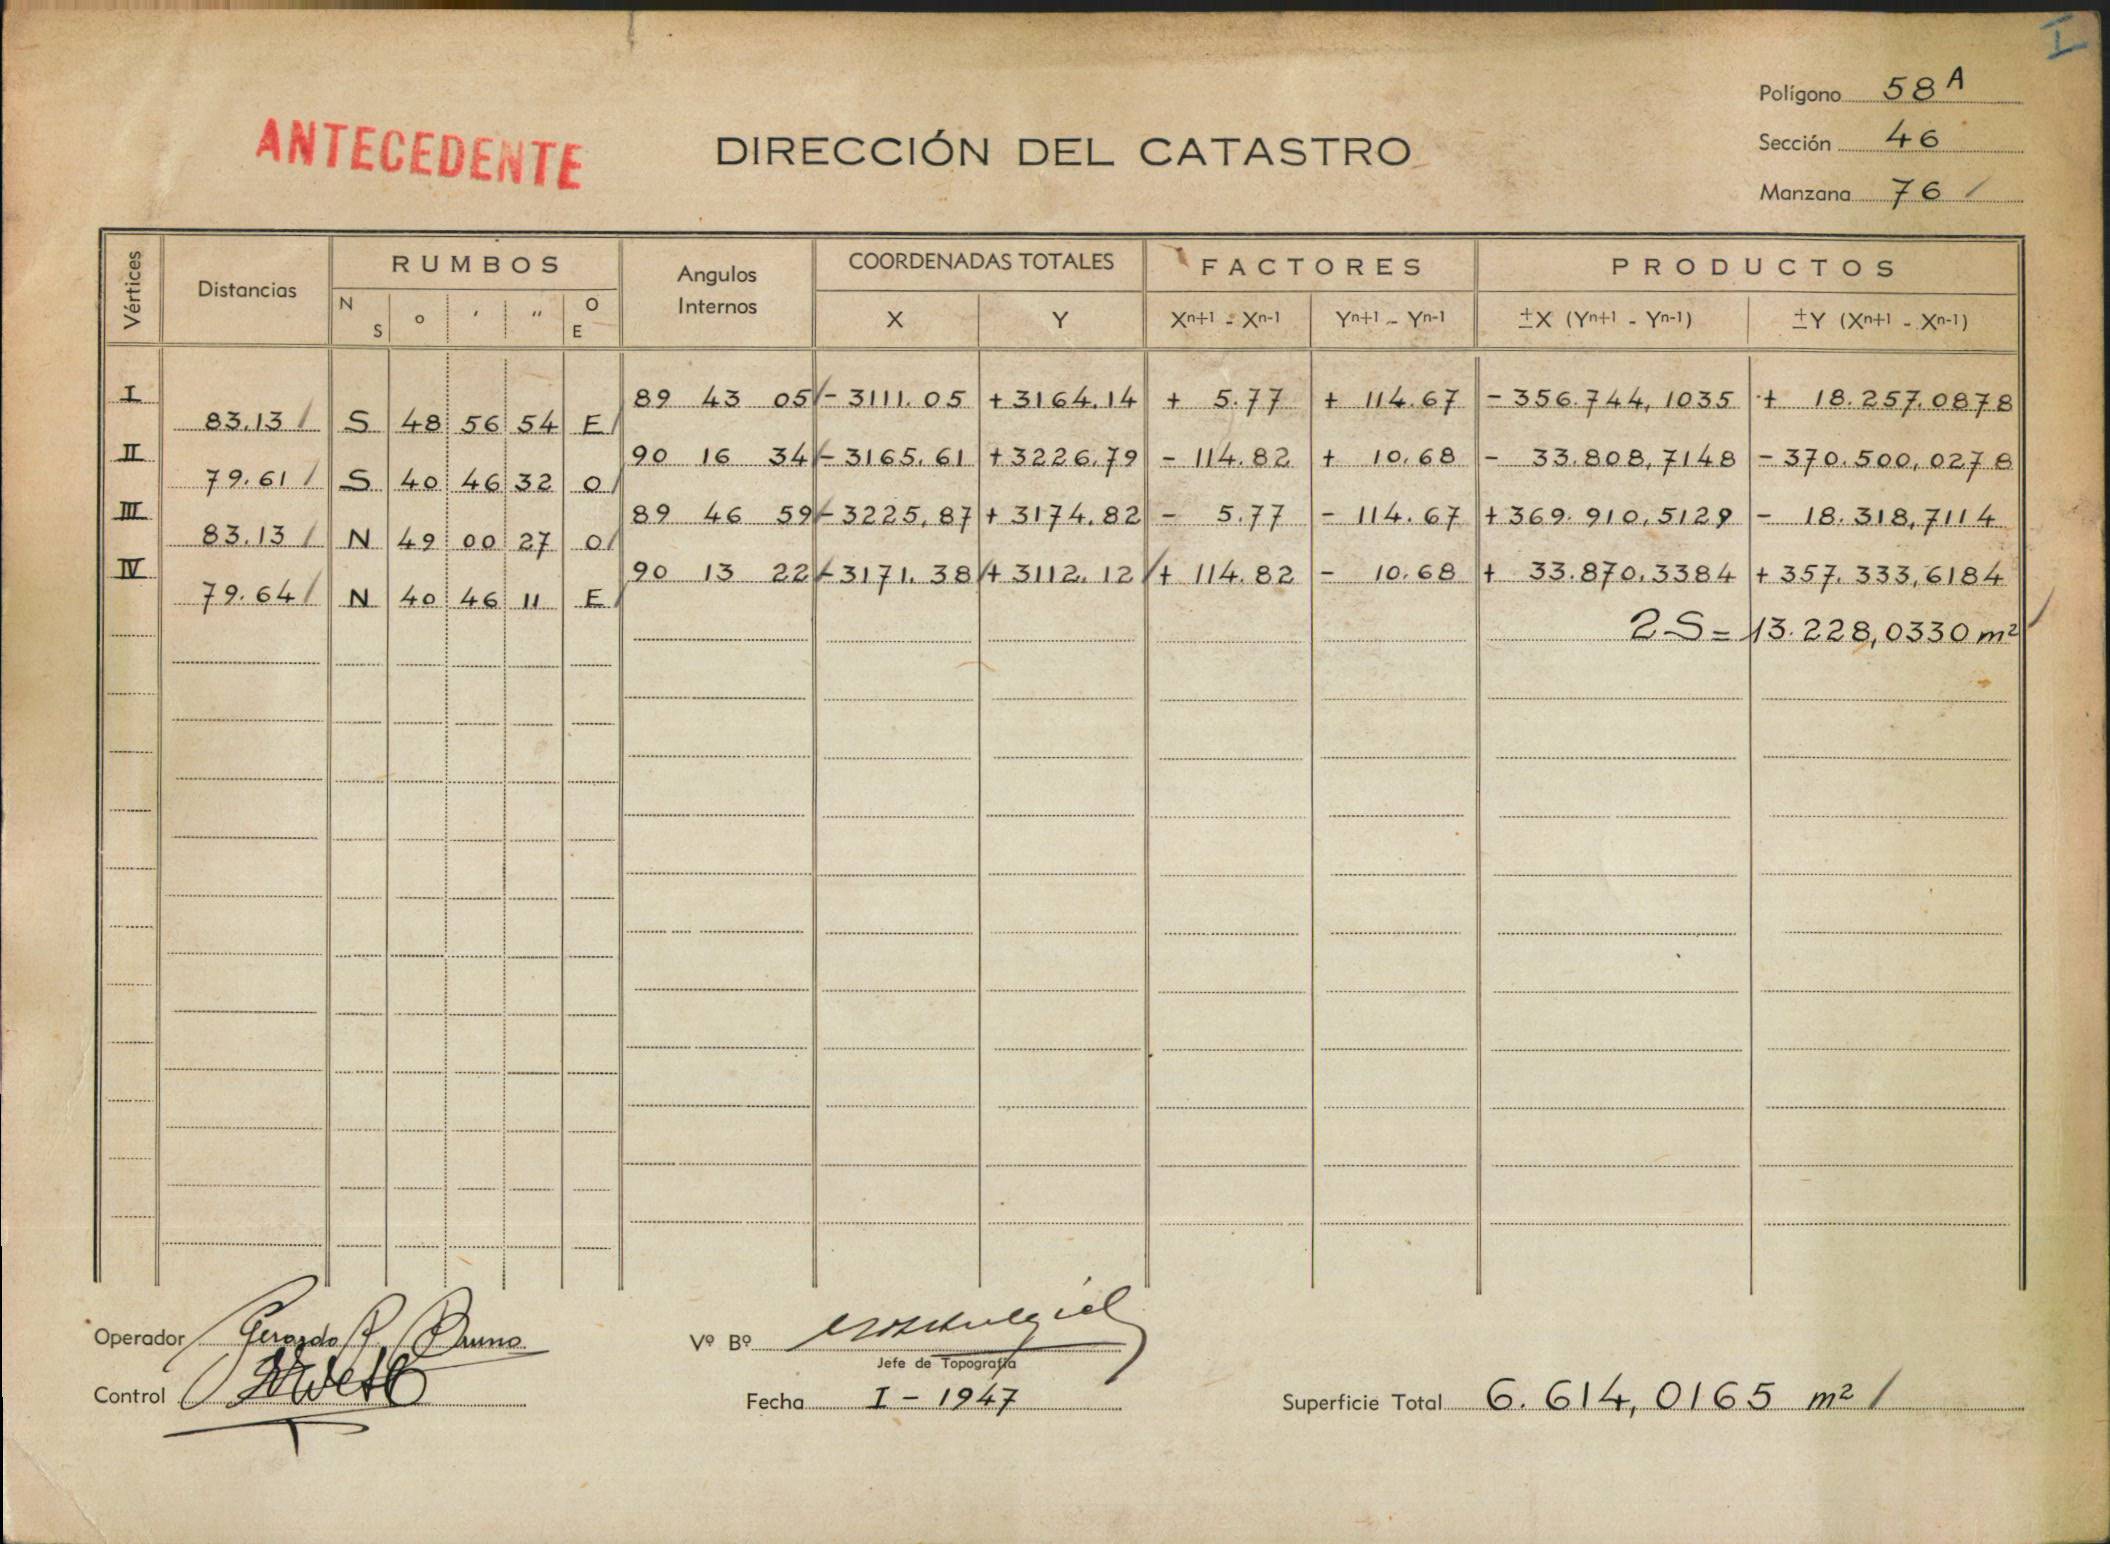 I
Polígono 58 A
ANTECEDENTE
DIRECCIÓN DEL CATASTRO
Sección 46
Manzana 76 /
Vértices Distancias RUMBOS Angulos Internos COORDENADAS TOTALES FACTORES PRODUCTOS
N S o ' " O E X Y Xn+1 - Xn-1 Yn+1 - Yn-1 ±X (Yn+1 - Yn-1) ±Y (Xn+1 - Xn-1)
I 89 43 05 - 3111.05 + 3164.14 + 5.77 + 114.67 - 356.744,1035 + 18.257.0878
83.13 / S 48 56 54 E /
II 90 16 34 - 3165.61 + 3226.79 - 114.82 + 10.68 - 33.808,7148 - 370.500,0278
79.61 / S 40 46 32 O /
III 89 46 59 - 3225,87 + 3174.82 - 5.77 - 114.67 + 369.910,5129 - 18.318,7114
83.13 / N 49 00 27 O /
IV 90 13 22 - 3171.38 + 3112.12 + 114.82 - 10.68 + 33.870.3384 + 357.333,6184
79.64 / N 40 46 11 E /
2S = 13.228,0330 m²
Operador Gerardo R. Bruno
Vº Bº
Jefe de Topografía
Control
Fecha I - 1947
Superficie Total 6.614,0165 m² /